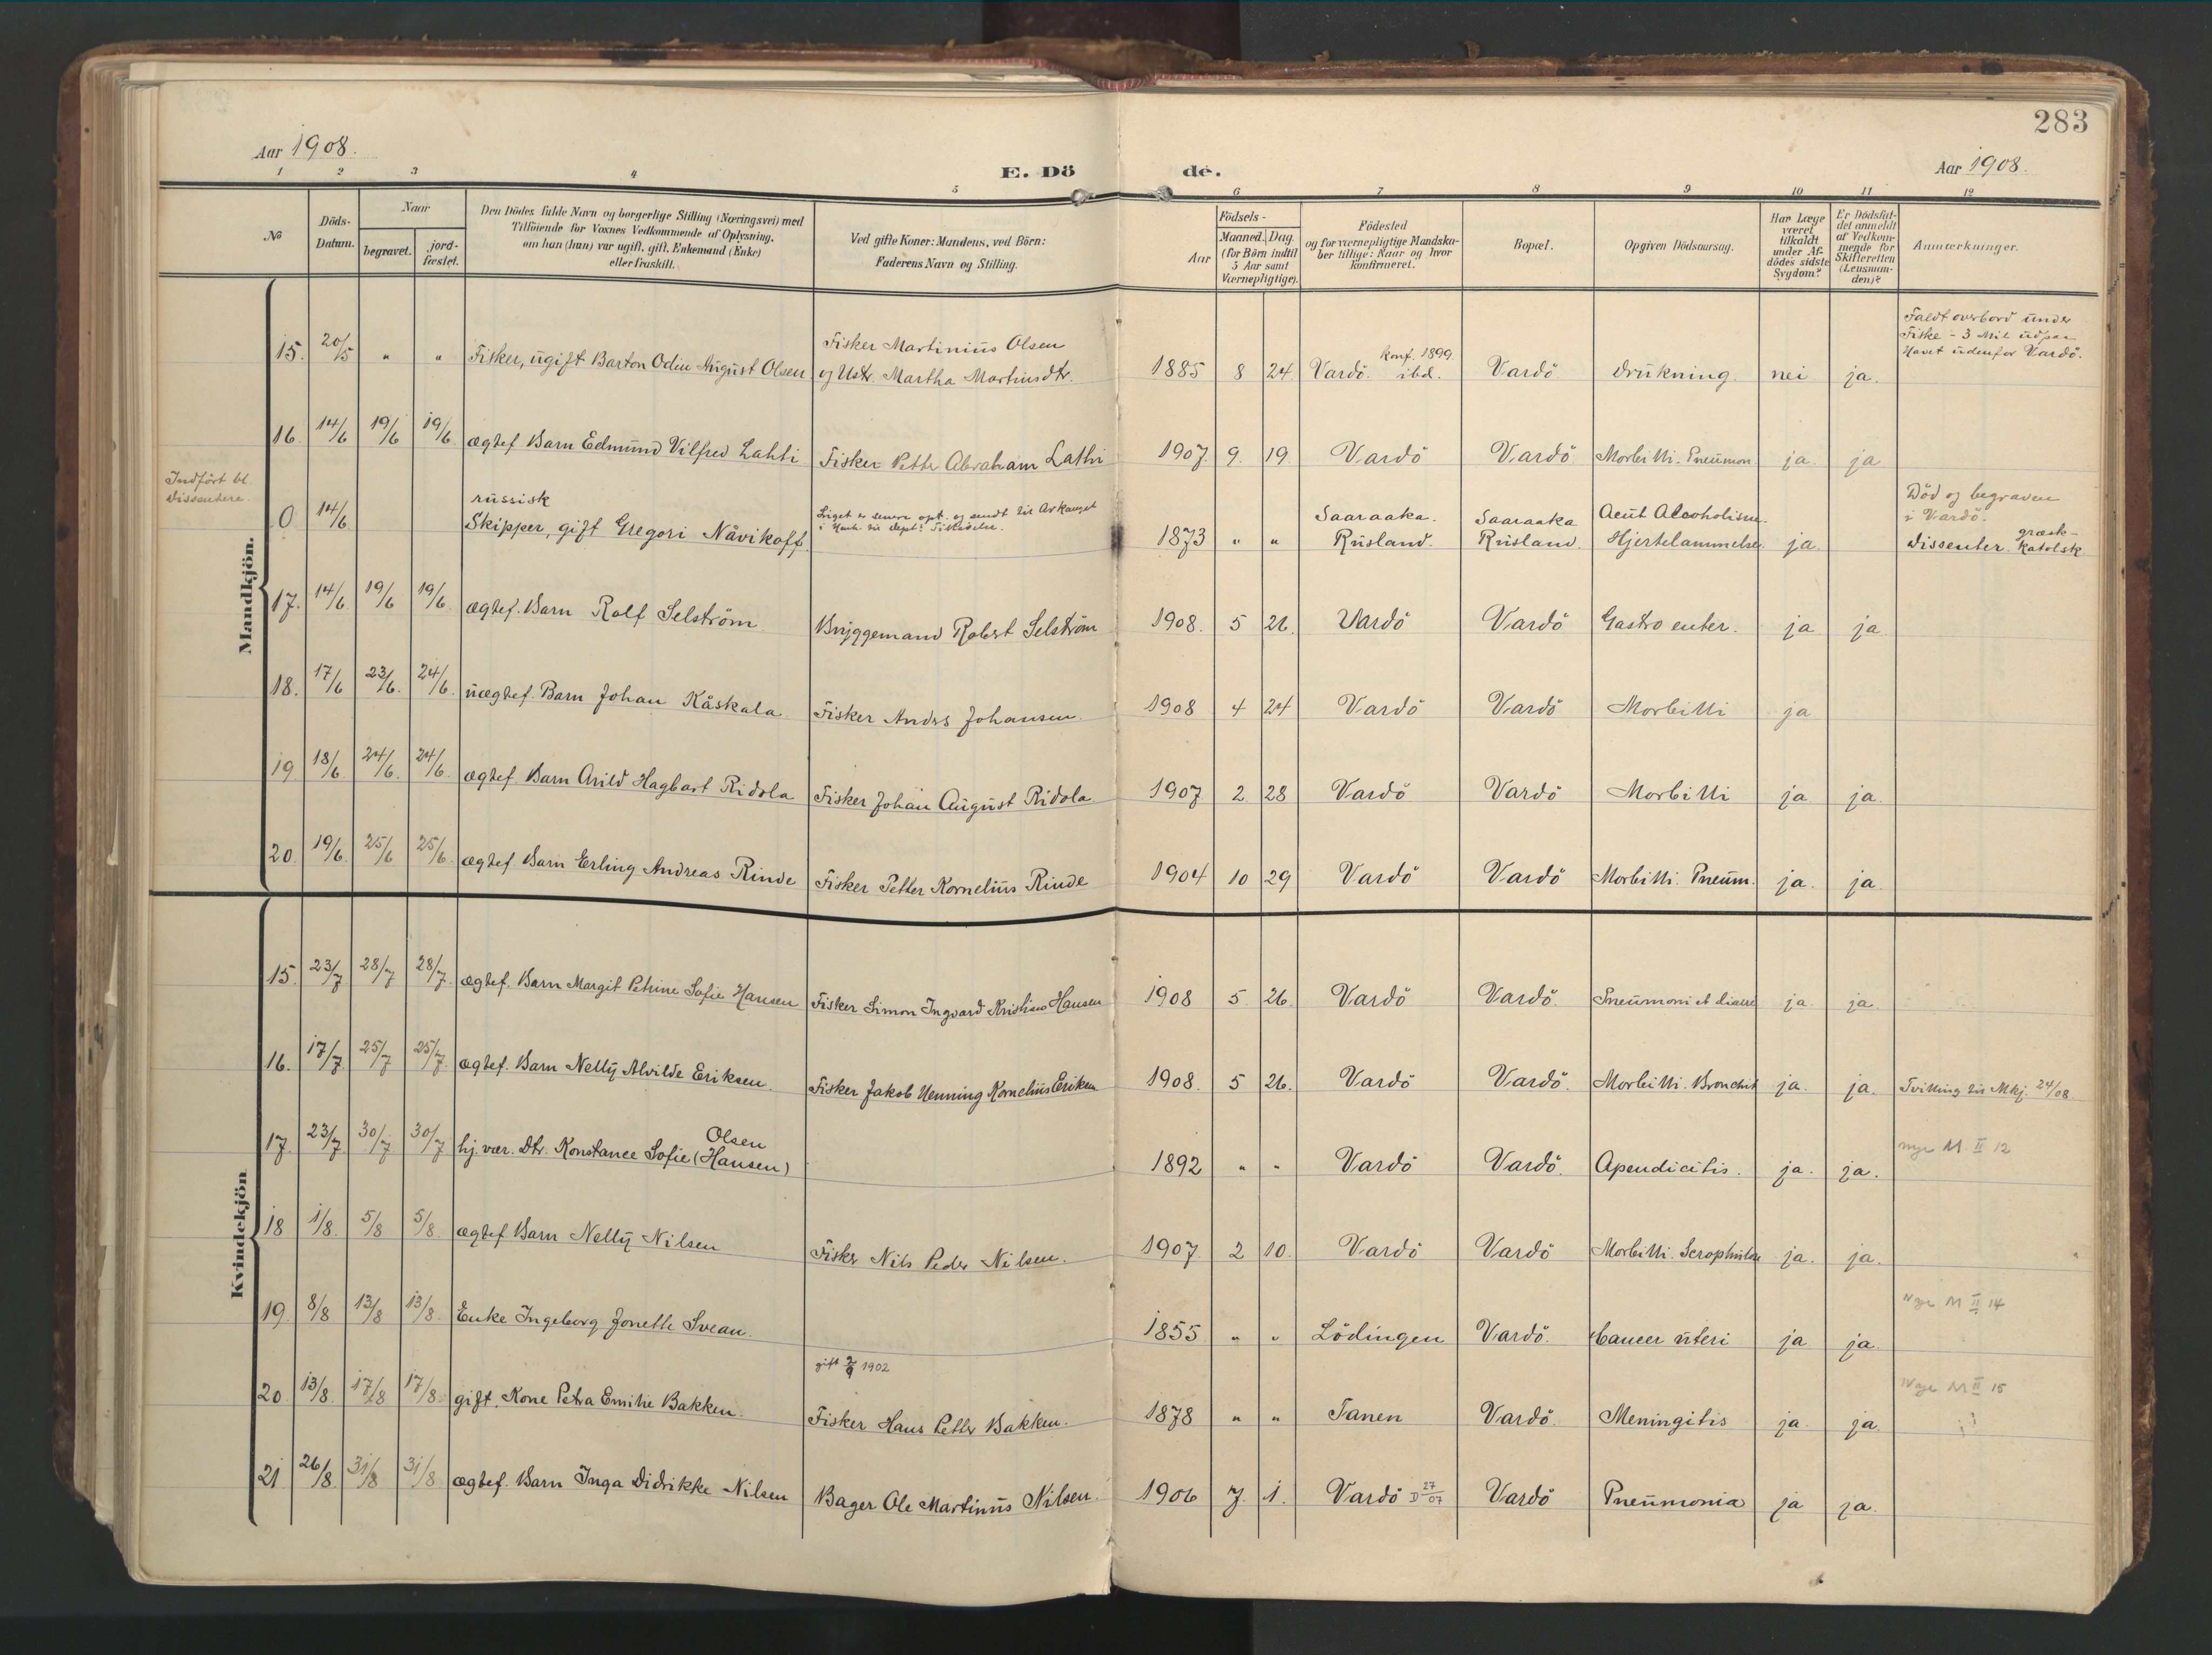 283
Aar 1908.
E. Dö de.
Aar 1908.
1 2 3 4 5 6 7 8 9 10 11 12
No
Döds-Datum.
Naar
begravet.
jord-fæstet.
Den Dödes fulde Navn og borgerlige Stilling (Næringsvei) med
Tilföiende for Voxnes Vedkommende af Oplysning,
om han (hun) var ugift, gift, Enkemand (Enke)
eller fraskilt.
Ved gifte Koner: Mandens, ved Börn:
Faderens Navn og Stilling.
Födsels-
Aar
Maaned. Dag.
(for Börn indtil
5 Aar samt
Værnepligtige).
Födested
og for værnepligtige Mandska-
ber tillige: Naar og hvor
konfirmeret.
Bopæl.
Opgiven Dödsaarsag.
Har Læge
været
tilkaldt
under Af-
dödes sidste
Sygdom?
Er Dödsfal-
det anmeldt
af Vedkom-
mende for
Skifteretten
(Lensman-
den)?
Anmærkninger.
Mandkjön.
15. 20/5 " " Fisker, ugift Barton Odin August Olsen
Fisker Martinius Olsen
og Ustr. Martha Martinsdtr.
1885 8 24 Vardö. konf. 1899. ibd. Vardö drukning. nei ja.
Faldt overbord under
Fiske - 3 Mil udpaa
Havet udenfor Vardö.
16. 14/6 19/6 19/6 ægtef. Barn Edmund Vilfred Lahti Fisker Petter Abraham Lathi 1907. 9. 19. Vardö Vardö Morbilli. Pneumon. ja. ja
Indfört bl.
dissentere.
0. 14/6 russisk
Skipper, gift Gregori Nåvikoff.
Liget er senere opt. og sendt til Arkangel
1873 " " Saaraaka. Rusland. Saaraaka Rusland. Acut Alcoholisme. Hjertelammelse. ja.
Död og begraven
i Vardö.
dissenter. græsk-katolsk.
17. 14/6 19/6 19/6 ægtef. Barn Rolf Selström Bryggemand Robert Selström 1908. 5 26. Vardö Vardö Gastro enter. ja ja
18. 17/6 23/6. 24/6. uægtef. Barn Johan Kåskala Fisker Anders Johansen. 1908 4 24 Vardö Vardö Morbilli ja
19. 18/6 24/6. 24/6. ægtef. Barn Arild Hagbart Ridola Fisker Johan August Ridola 1907 2. 28 Vardö Vardö Morbilli ja ja.
20. 19/6. 25/6 25/6. ægtef. Barn Erling Andreas Rinde Fisker Petter Kornelius Rinde 1904 10 29 Vardö Vardö Morbilli. Pneum. ja. ja.
Kvindekjön
15. 23/7 28/7 28/7. ægtef. Barn Margit Petrine Sofie Hansen Fisker Simon Ingvard Kristian Hansen 1908 5. 26. Vardö Vardö. Pneumoni et diarre ja. ja.
16. 17/7 25/7 25/7. ægtef. Barn Nelly Alvilde Eriksen. Fisker Jakob Henning Kornelius Eriksen 1908. 5 26. Vardö Vardö. Morbilli. Bronchit ja. ja. Tvilling til Mkj. 24/08.
17. 23/7 30/7 30/7 hj. vær. Dtr. Konstance Sofie (Hansen) Olsen 1892 " " Vardö Vardö. Apendicitis. ja. ja. nye M. II 12
18 1/8. 5/8 5/8. ægtef. Barn Nelly Nilsen Fisker Nils Peder Nilsen. 1907. 2 10. Vardö Vardö Morbilli. Scrophulose ja. ja.
19. 8/8 13/8 13/8. Enke Ingeborg Jonette Svean. 1855 " " Lödingen Vardö. Cancer uteri ja ja. Nye M II 14
20. 13/8. 17/8 17/8. gift. Kone Petra Emilie Bakken. gift 2/9 1902
Fisker Hans Petter Bakken. 1878 " " Tanen Vardö. Meningitis ja. ja. Nye M II 15
21 26/8 31/8 31/8 ægtef. Barn Inga Didrikke Nilsen Bager Ole Martinus Nilsen. 1906 7. 1. Vardö D 27/07 Vardö Pneumonia ja ja.